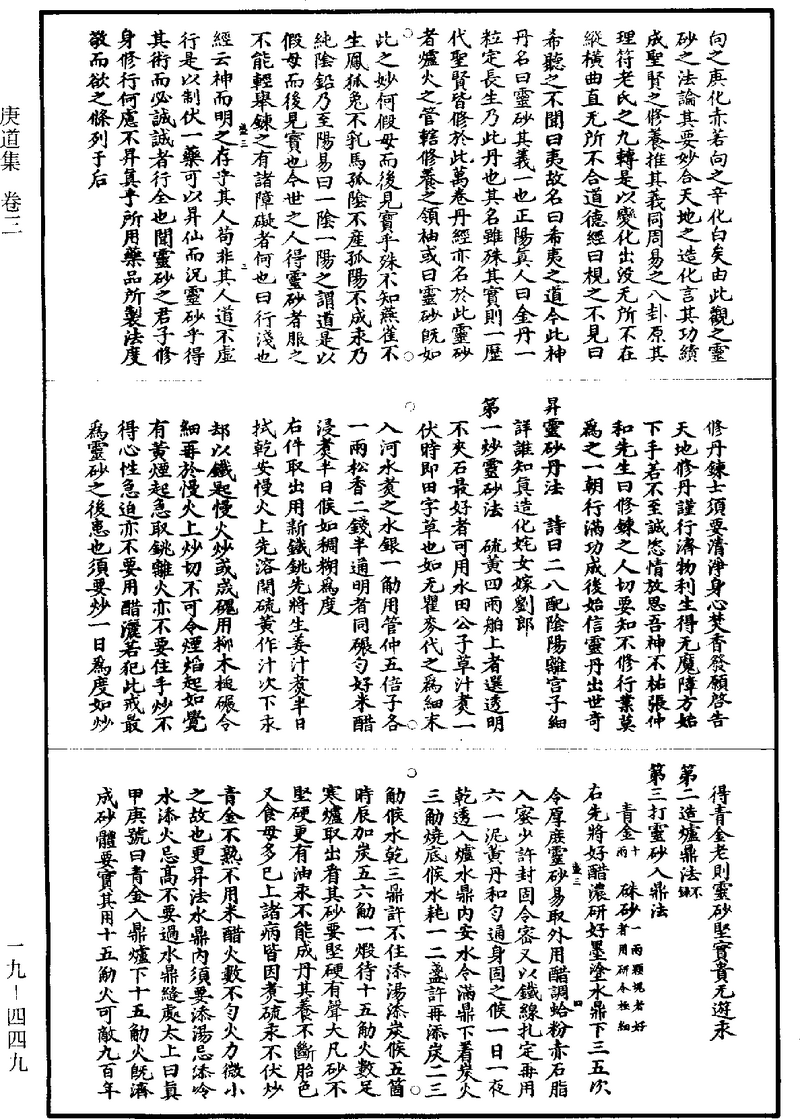 庚道集　卷三
向之庚化赤若向之辛化白矣由此觀之靈
砂之法論其要妙合天地之造化言其功績
成聖賢之修養推其義同周易之八卦原其
理符老氏之九轉是以變化出没无所不在
縱橫曲直无所不合道德經曰視之不見曰
希聽之不聞曰夷故名曰希夷之道今此神
丹名曰靈砂其義一也正陽真人曰金丹一
粒定長生乃此丹也其名雖殊其實則一歷
代聖賢皆修於此萬卷丹經亦名於此靈砂
者爐火之管轄修養之領袖或曰靈砂旣如
此之妙何假母而後見寶乎殊不知燕雀不
生鳳狐兔不乳馬孤陰不産孤陽不成汞乃
純陰鉛乃至陽易曰一陰一陽之謂道是以
假母而後見寶也今世之人得靈砂者服之
不能輕舉鍊之有諸障礙者何也曰行淺也
經云神而明之存乎其人苟非其人道不虛
行是以制伏一藥可以昇仙而況靈砂乎得
其術而必誠誠者行全也聞靈砂之君子修
身修行何慮不昇真乎所用藥品所製法度
敬而欲之條列于后
修丹鍊士須要清淨身心焚香發願啓告
天地修丹謹行濟物利生得无魔障方始
下手若不至誠恣情放恣吾神不祐張仲
和先生曰修鍊之人切要知不修行業莫
爲之一朝行滿功成後始信靈丹出世奇
昇靈砂丹法　詩曰二八配陰陽離宫子細
詳誰知真造化姹女嫁劉郎
第一炒靈砂法　硫黄四兩舶上者選透明
不夾石最好者可用水田公子草汁煑一
伏時即田字草也如无瞿麥代之爲細末
入河水煑之水銀一觔用管仲五倍子各
一兩松香二錢半通明者同碾勻好米醋
浸煑半日候如稠糊爲度
右件取出用新鐵銚先將生姜汁煑半日
拭乾安慢火上先溶開硫黄作汁次下汞
却以鐵匙慢火炒或成塊用柳木槌碾令
細再於慢火上炒切不可令煙焰起如覺
有黄煙起急取銚離火亦不要住手炒不
得心性急迫亦不要用醋灑若犯此戒最
爲靈砂之後患也須要炒一日爲度如炒
得青金老則靈砂堅實貴无遊汞
第二造爐鼎法不錄
第三打靈砂入鼎法
青金十兩　硃砂一兩顆塊者好者用研令極細
右先將好醋濃研好墨塗水鼎下三五次
令厚庶靈砂易取外用醋調蛤粉赤石脂
入蜜少許封固令密又以鐵線扎定再用
六一泥黄丹和勻通身固之候一日一夜
乾透入爐水鼎内安水令滿鼎下着炭火
三觔燒底候水耗一二盞許再添炭二三
觔候水乾三鼎許不住添湯添炭候五箇
時辰加炭五六觔一煅待十五觔火數足
寒爐取出看其砂要堅硬有聲大凡砂不
堅硬更有油汞不能成丹其養不斷胎色
又食母多已上諸病皆因煑硫汞不伏炒
青金不熟不用米醋火數不勻火力微小
之故也更昇法水鼎内須要添湯忌添冷
水添火忌高不要過水鼎縫處太上曰真
甲庚號曰青金入鼎爐下十五觔火旣濟
成砂體要實其用十五觔火可敵九百年
一九—四四九